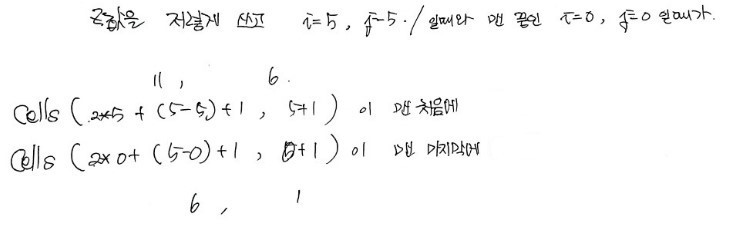 z값을 저렇게 쓰고 i=5, j=5./일때와 맨 끝인 i=0, j=0 일때가.
11, 6.
Cells (2*5 + (5-5)+1, 5+1) 이 맨 처음에
Cells (2*0+ (5-0)+1, 0+1) 이 맨 마지막에
6, 1